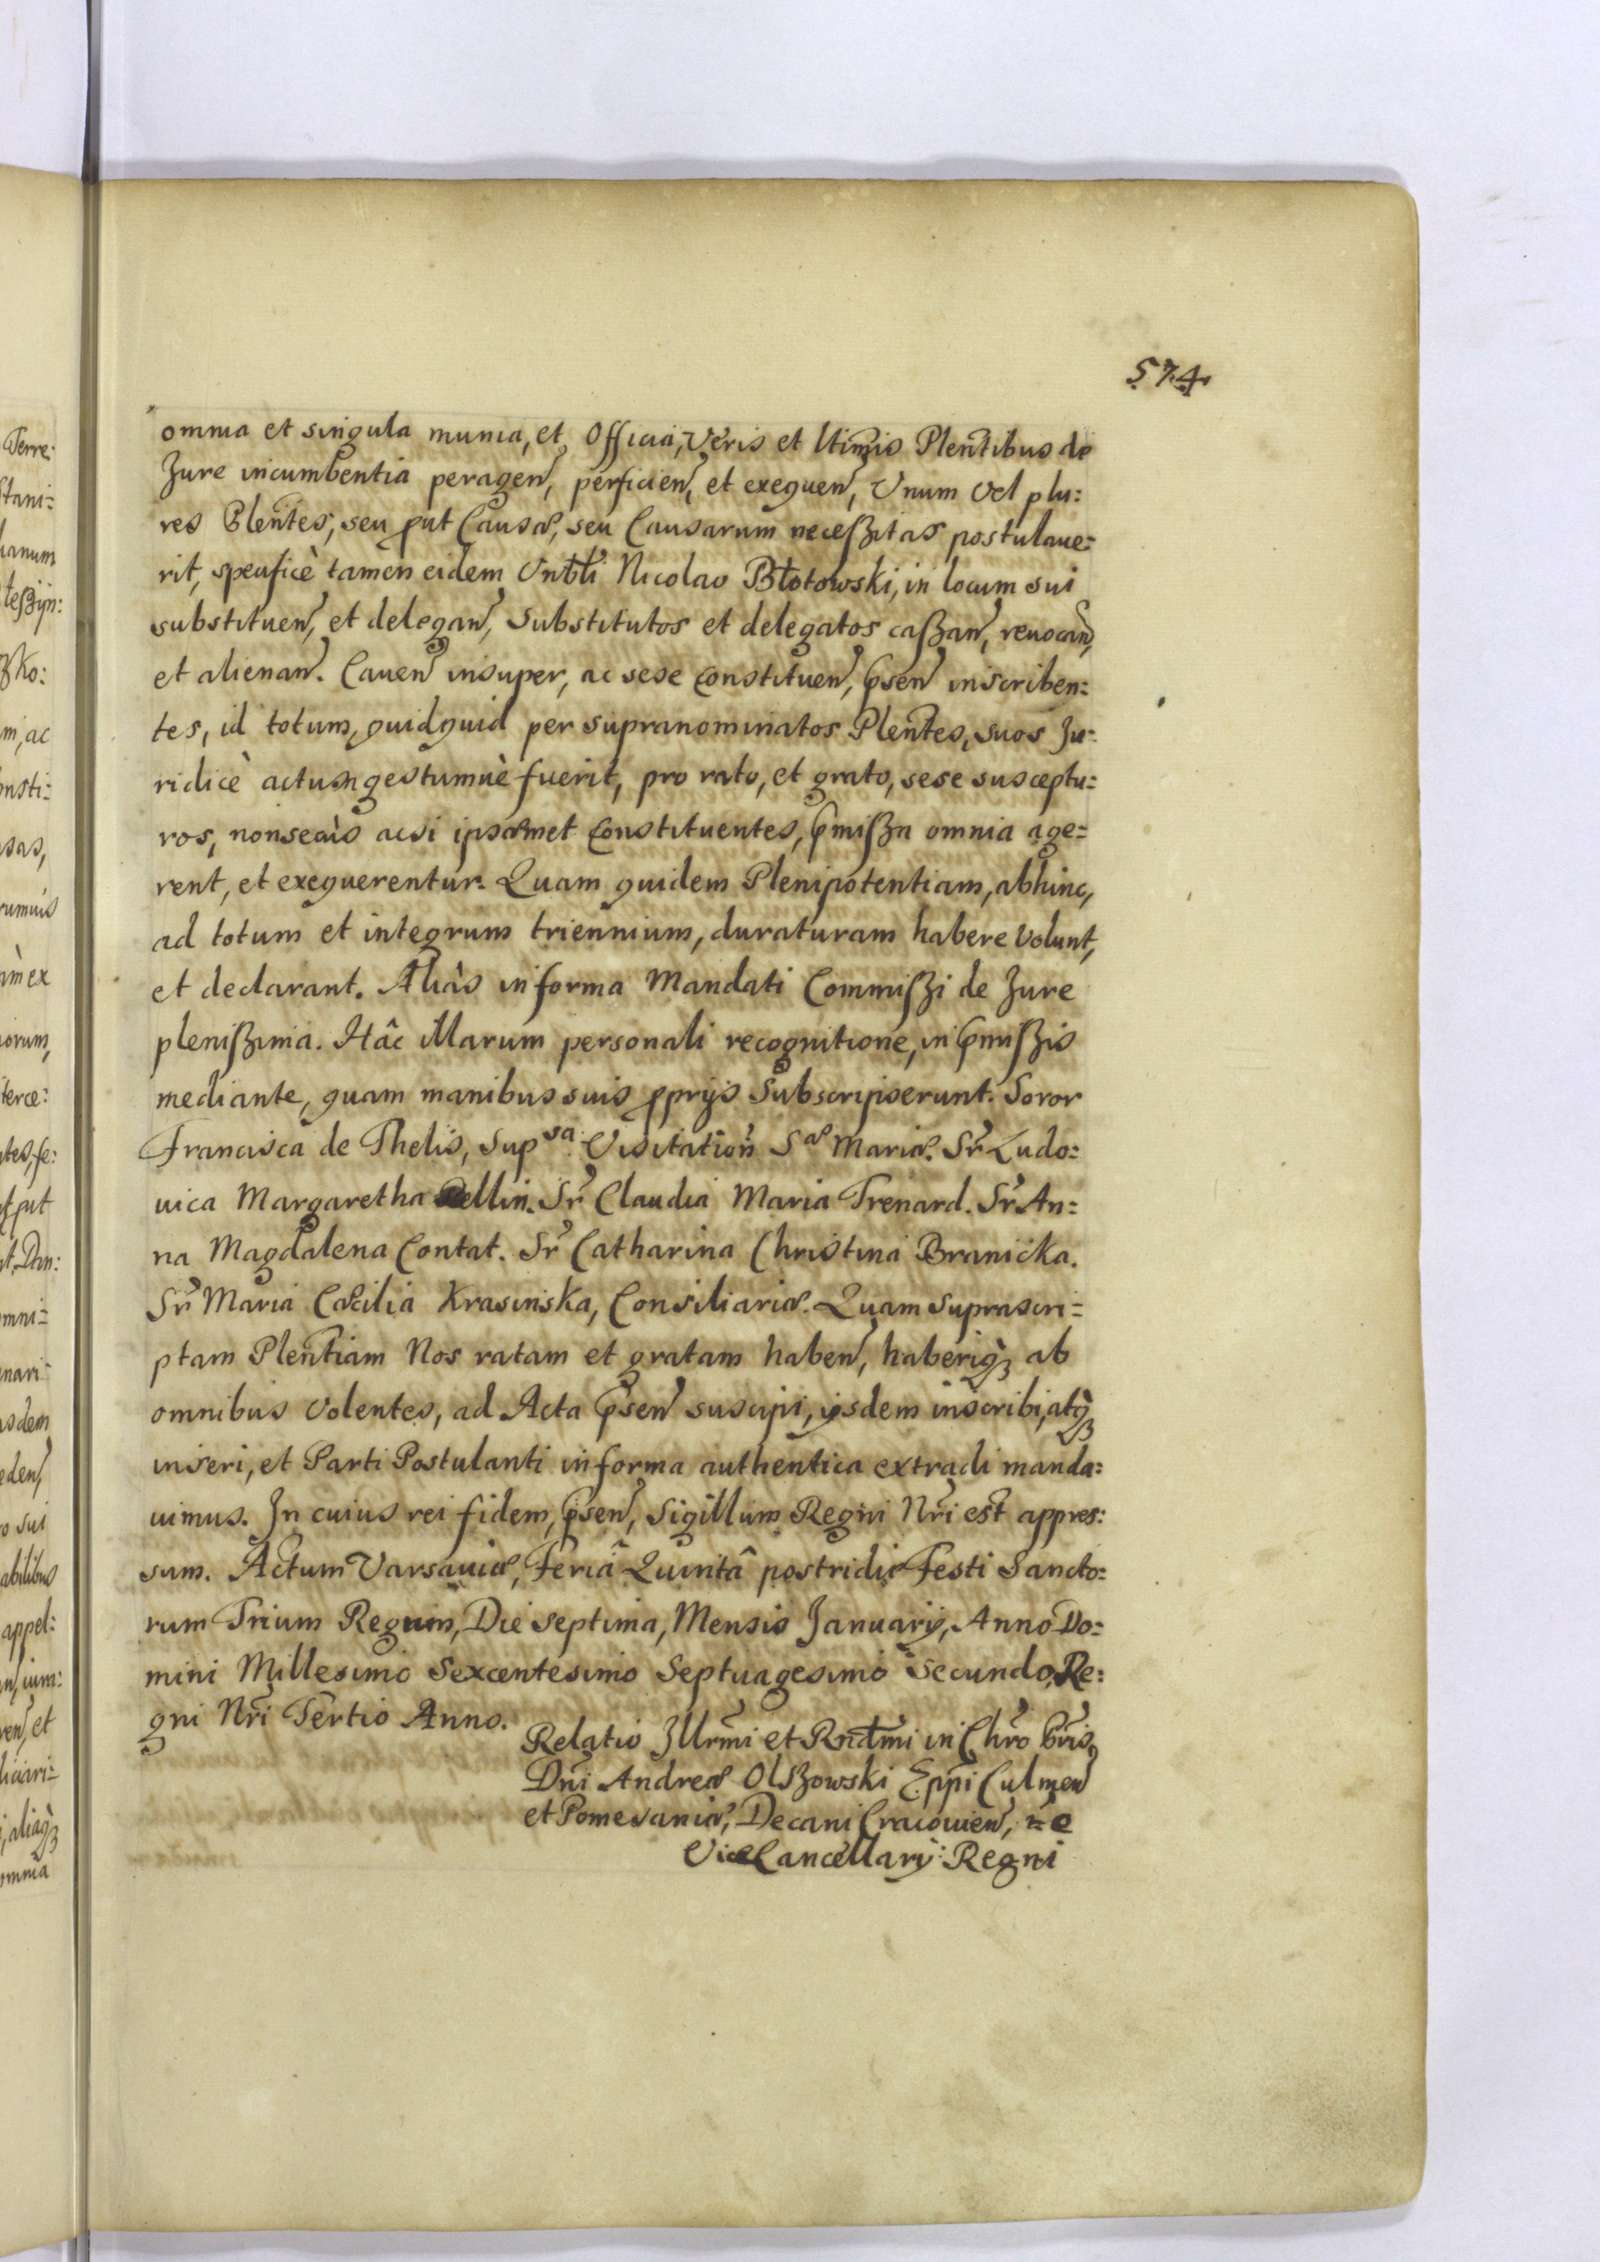 574
omnia et singula munia, et Officia, Veris et ltimis Plentibus de
Jure incumbentia peragen, perficien, et exequen, Unum vel plu:
res Plentes, seu put Causæ, seu Causarum neceßitas postulaue:
rit, specificè tamen eidem Unbli Nicolao Błotowski, in locum sui
substituen, et delegan, Substitutos et delegatos caßan, reuocan,
et alienan. Cauen insuper, ac sese Constituen, psen inscriben:
tes, id totum, quidquid per supranominatos Plentes, suos Ju:
ridicè actum gestumuè fuerit, pro rato, et grato, sese susceptu:
ros, nonsecùs acsi ipsæmet Constituentes, pmißa omnia age:
rent, et exequerentur. Quam quidem Plenipotentiam, abhinc,
ad totum et integrum triennium, duraturam habere volunt,
et declarant. Aliàs in forma Mandati Commißi de Jure
plenißima. Hâc illarum personali recognitione, in pmißis
mediante, quam manibus suis pprijs Subscripserunt. Soror
Francisca de Thelis, Supsa. Visitation Sæ Mariæ. Sr Ludo:
uica Margaretha Rellin. Sr Claudia Maria Trenard. Sr An:
na Magdalena Contat. Sr Catharina Christina Branicka.
Sr Maria Cæcilia Krasinska, Consiliariæ. Quam suprascri:
ptam Plentiam Nos ratam et gratam haben, haberiq ab
omnibus volentes, ad Acta psen suscipi, ijsdem inscribi, atq
inseri, et Parti Postulanti in forma authentica extradi manda:
uimus. In cuius rei fidem, psen, Sigillum Regni Nri est appres:
sum. Actum Varsauiæ, Feriâ Quintâ postridie Festi Sancto:
rum Trium Regum, Die septima, Mensis Januarij, Anno Do:
mini Millesimo Sexcentesimo Septuagesimo Secundo, Re:
gni Nri Tertio Anno.
Relatio Illrmi et Rndmi in Chro Pris,
Dni Andreæ Olszowski Eppi Culmen
et Pomesaniæ, Decani Cracouien,
ViceCancellarij Regni